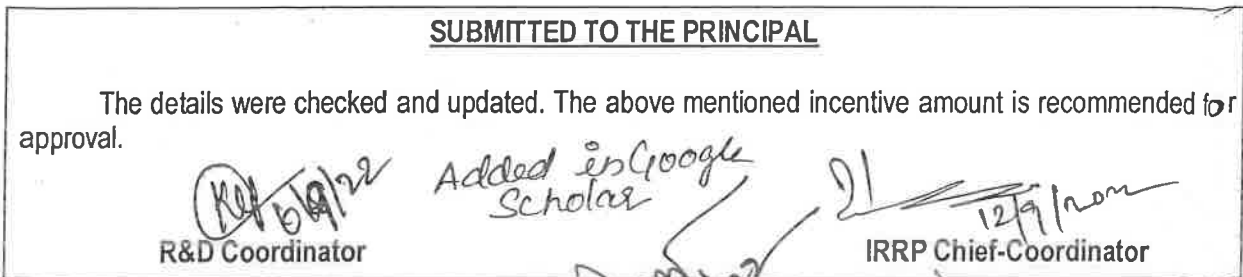 SUBMITTED TO THE PRINCIPAL
The details were checked and updated. The above mentioned incentive amount is recommended for
approval.
Added in Google
Scholar
12/9/2022
R&D Coordinator
IRRP Chief-Coordinator